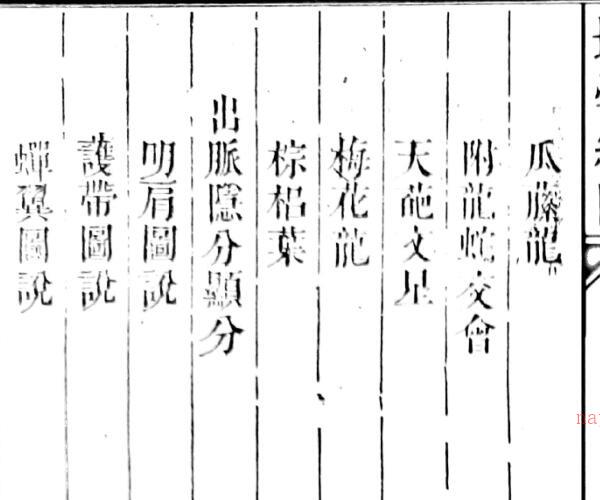 瓜藤龍
附龍蛇交會
天葩文星
梅花龍
棕梠葉
出脈隱分顯分
明肩圖說
護帶圖說
蟬翼圖說
na